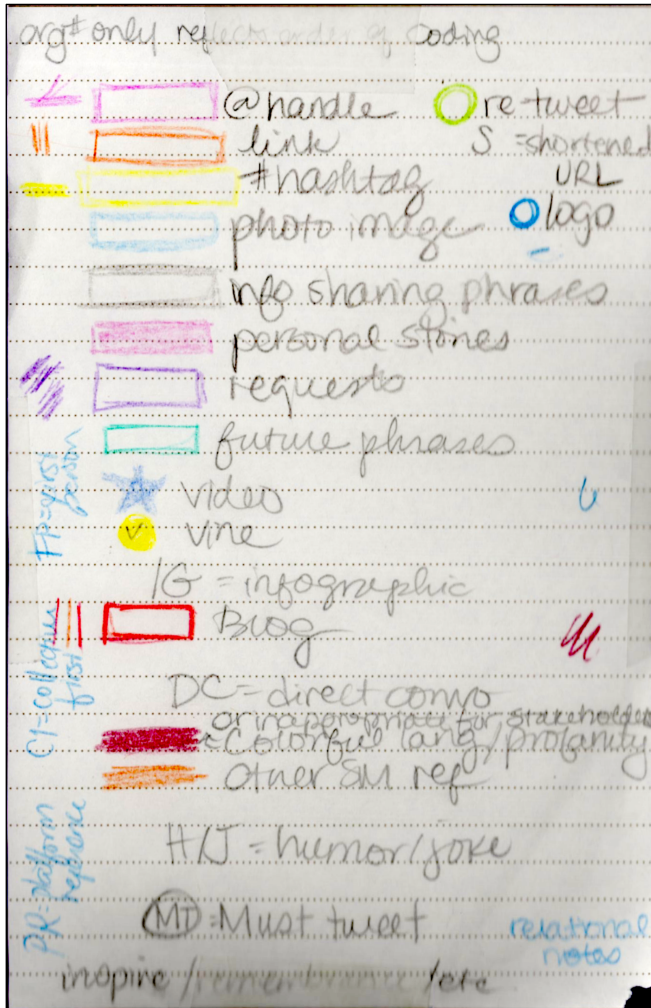 org# only reflects order of coding
@handle
re tweet
link
S = shortened URL
#hashtag
photo image
logo
info sharing phrases
personal stories
requests
future phrases
video
V vine
IG = infographic
Blog
DC = direct convo
or inappropriate for stakeholders
= Colorful lang/profanity
other SM ref
H/J = humor/joke
MT = Must tweet
relational
notes
inspire / remembrance / etc
FP = first
person
first
PR = platform
reference